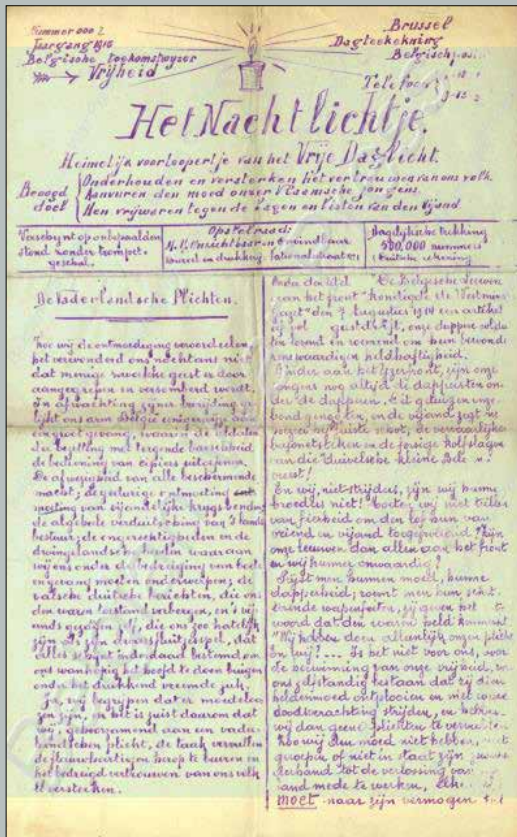 Nummer 000
Jaargang 1916
Belgische toekomstwyzer
Vrijheid
Brussel
Dagteekekning
Belgisch
Telefoon
Het Nachtlichtje.
Heimelijk voorloopertje van het Vrije Daglicht.
Beoogd doel
Onderhouden en versterken het vertrouwen van ons volk.
Aanvuren den moed onzer Vlaamsche jongens
Hen vrijwaren tegen de lagen en listen van den vijand.
Verschynt op onbepaalden
stond zonder trompet-
geschal.
Opstelraad:
M. V. Onzichtbaar en Onvindbaar
Bureel en drukkerij: Nationalstraat
Dagelyksche trekking
500,000 nummers
De Vaderlandsche Plichten.
Hoe wij de ontmoediging veroordeelen,
het verwondert ons nochtans niet
dat menige zwakke geest er door
aangegrepen en versomberd wordt.
In afwachting zijner bevrijding ge-
lijkt ons arm België eenigerwijze aan
een groot gevang, waarin de soldaten
die bezetting met tergende barschheid
de bediening van cipiers uitoefenen.
De afwezigheid van alle beschermende
macht; de gedurige ontmoeting
van vijandelijke krijgsbenden;
de algeheele verduitsching van 's lands
bestuur; de ongerechtigheden en de
dwingelandsche bevelen waaraan
wij ons onder de bedreiging van boete
en gevang moeten onderwerpen; de
valsche duitsche berichten, die ons
den waren toestand verbergen, en 's vij-
ands gezagen of, die ons zoo hatelijk
zijn als zijn dwarsfluitgespel, dat
alles schijnt inderdaad bestemd om
ons wanhopig het hoofd te doen buigen
onder het drukkend vreemde juk.
Ja, wij begrijpen dat er moedeloo-
zen zijn, en het is juist daarom dat
wij, gehoorzamend aan een vader-
landschen plicht, de taak vervullen
de flauwhartigen hoop te beuren en
het bedreigd vertrouwen van ons volk
te versterken.
Onder den titel "De Belgische Leeuwen
aan het front" kondigde de Westmins.
Gazet" den 7 Augustus 1916 een artikel
af vol geestdrift, onze dappere solda-
ten lovend en roemend om hun bewonde-
renswaardigen heldhaftigheid.
Ginder aan het Yzerfront, zijn onze
jongens nog altijd de dappersten on-
der de dapperen, dit getuigen onze
bondgenooten, en de vijand zegt
de vervaarlijke
bajonetsteken en de forsige kolfslagen
van die "duivelsche kleine Bel
vreest!
En wij, niet-strijders, zijn wij hunne
broeders niet! Moeten wij niet trillen
van fierheid om den lof hun van
vriend en vijand toegezwaaid? Zijn
onze leeuwen dan allen aan het front
en wij hunner onwaardig?
Prijst men hunnen moed, hunne
dapperheid; roemt men hun schit-
terende wapenfeiten, zij geven het
woord dat den waren held kenmerkt
"Wij hebben doen allenlijk onzen plicht
En wij!... Is het niet voor ons, voor
de herwinning van onze vrijheid, voor
ons zelfstandig bestaan dat zij dien
heldenmoed ontplooien en met ware
doodverachting strijden, en hebben
wij dan geene plichten te vervullen
Zoo wij den moed niet hebben,
geroepen of niet in staat zijn
verband tot de verlossing van
land mede te werken, elk
moet naar zijn vermogen